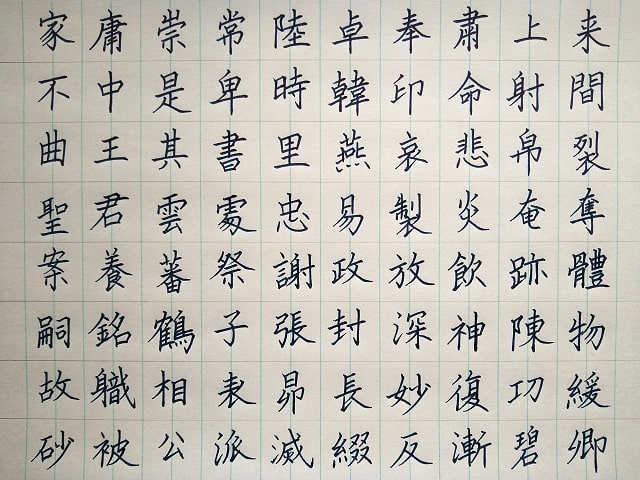 家庸崇常陸卓奉肅上来
不中是卑時韓印命射間
曲王其書里燕哀悲帛裂
聖君雲霎忠易製炎奄奪
案養蕃祭謝政放飲跡體
嗣銘鶴子張封深神陳物
故職相表昴長妙復功緩
砂被公派滅綴反漸碧卿